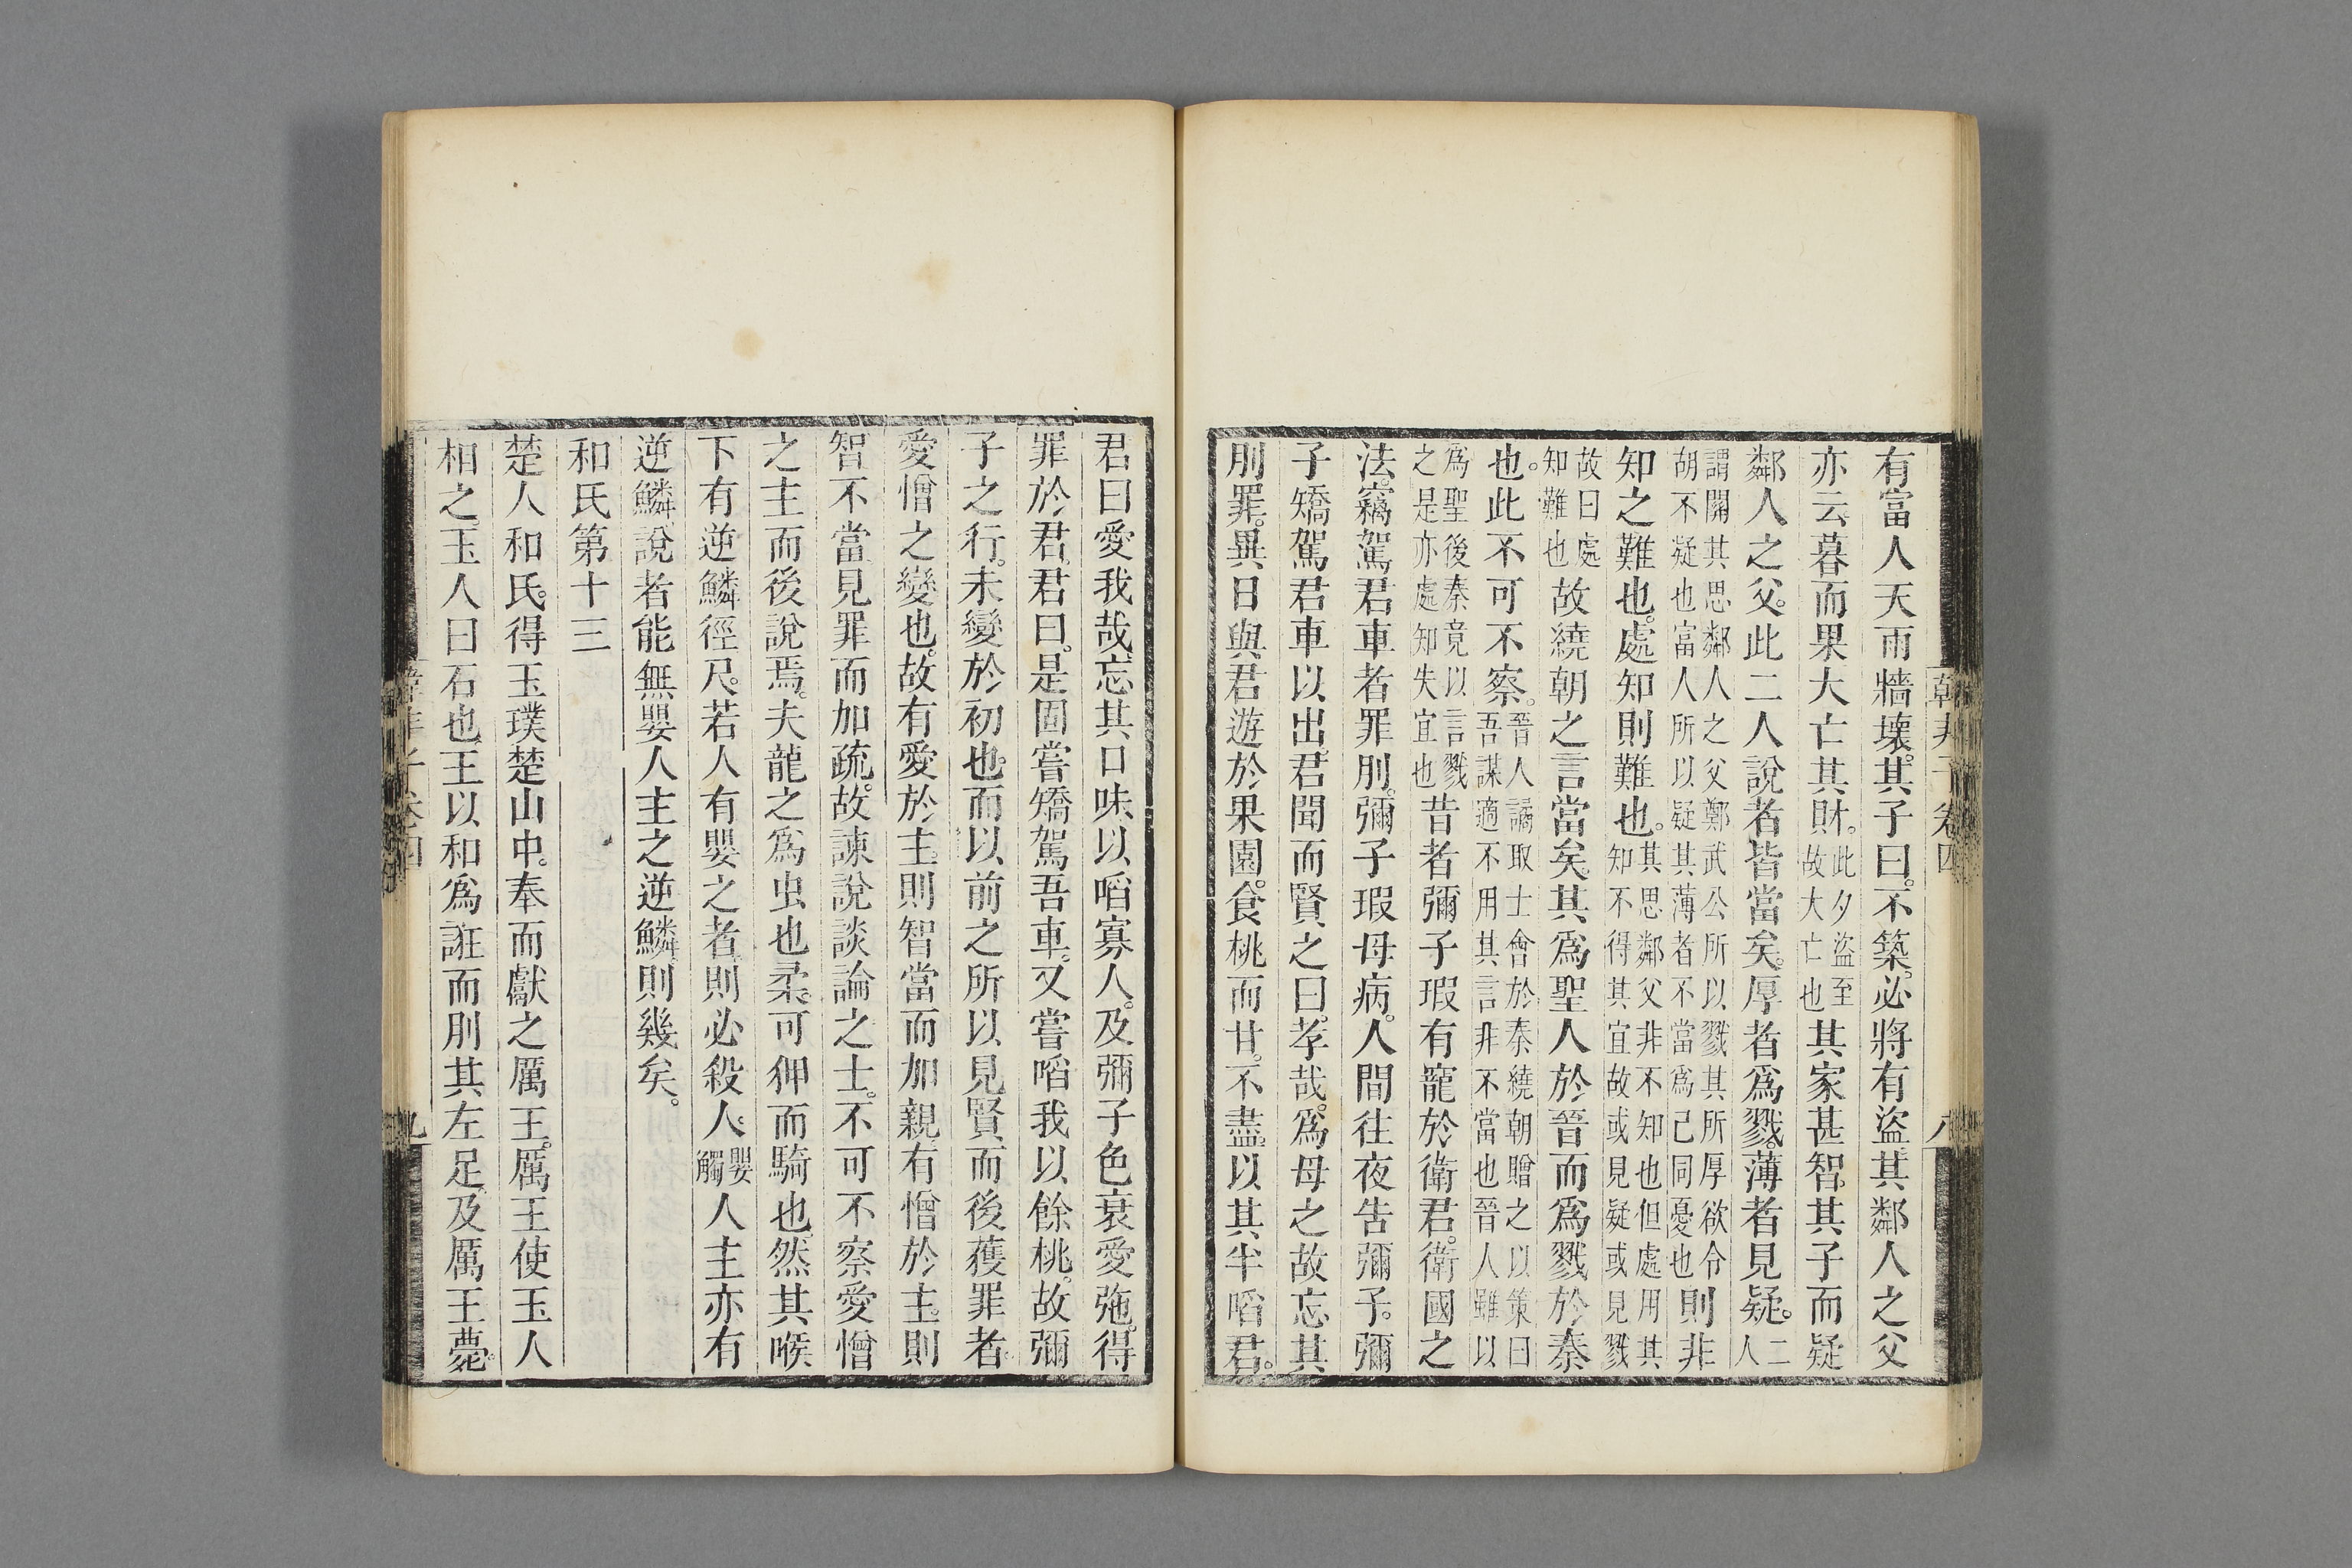 韓非子卷四
八
有富人天雨牆壞其子曰不築必將有盜其鄰人之父
亦云暮而果大亡其財此夕盜至故大亡也其家甚智其子而疑
鄰人之父此二人說者皆當矣厚者爲戮薄者見疑二人
謂關其思鄰人之父鄭武公所以戮其所厚欲令胡不疑也富人所以疑其薄者不當爲己同憂也則非
知之難也處知則難也其思鄰父非不知也但處用其知不得其宜故或見疑或見戮
故曰處知難也故繞朝之言當矣其爲聖人於晉而爲戮於秦
也此不可不察晉人譎取士會於秦繞朝贈之以策曰吾謀適不用其言非不當也晉人雖以
爲聖後秦竟以言戮之是亦處知失宜也昔者彌子瑕有寵於衛君衛國之
法竊駕君車者罪刖彌子瑕母病人間往夜告彌子彌
子矯駕君車以出君聞而賢之曰孝哉爲母之故忘其
刖罪異日與君遊於果園食桃而甘不盡以其半啗君
君曰愛我哉忘其口味以啗寡人及彌子色衰愛弛得
罪於君君曰是固嘗矯駕吾車又嘗啗我以餘桃故彌
子之行未變於初也而以前之所以見賢而後獲罪者
愛憎之變也故有愛於主則智當而加親有憎於主則
智不當見罪而加疏故諫說談論之士不可不察愛憎
之主而後說焉夫龍之爲虫也柔可狎而騎也然其喉
下有逆鱗徑尺若人有嬰之者則必殺人嬰觸人主亦有
逆鱗說者能無嬰人主之逆鱗則幾矣
和氏第十三
楚人和氏得玉璞楚山中奉而獻之厲王厲王使玉人
相之玉人曰石也王以和爲誑而刖其左足及厲王薨
韓非子卷四
九